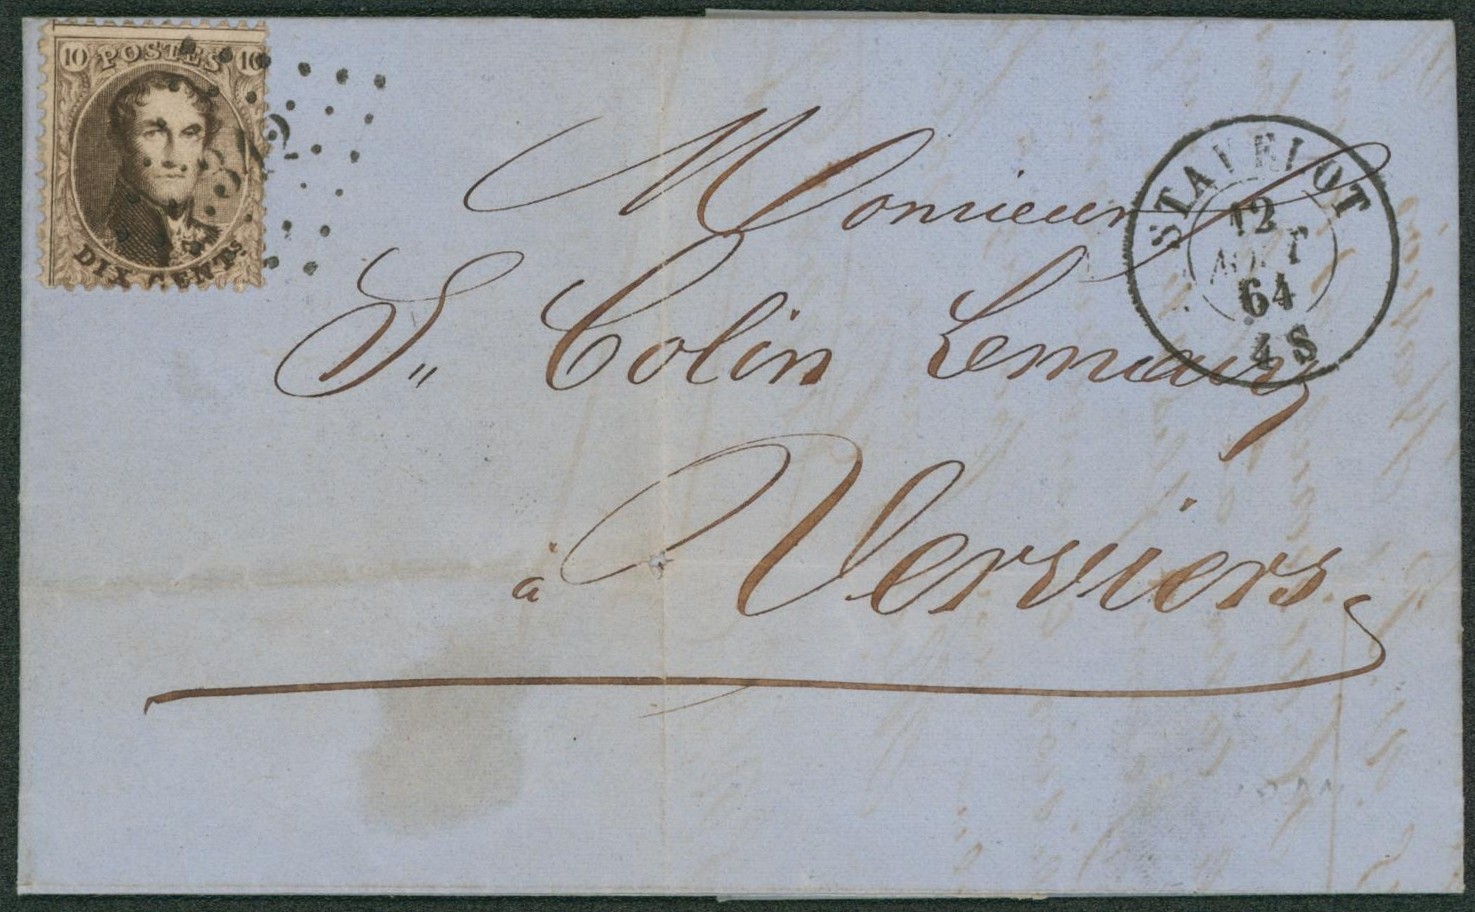 10 POSTES 10
DIX CENTS
STAVELOT
12
AOUT
64
4 S
Monsieur
S,, Colin Lemaire
à Verviers